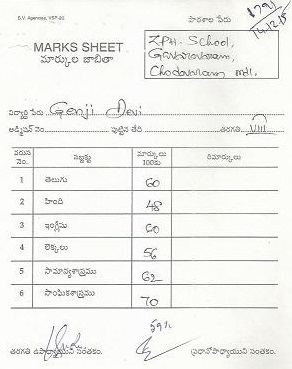 S.V. Agencies, VSP-20.
పాఠశాల పేరు
1791
14/12/15
MARKS SHEET
మార్కుల జాబితా
ZPH. School,
Gavaravaram,
Chodavaram mdl.
విద్యార్థి పేరు Genji Devi
అడ్మిషన్ నెం. పుట్టిన తేది తరగతి VIII
వరుస నెం. సబ్జక్టు మార్కులు 100కు రిమార్కులు
1 తెలుగు 60
2 హింది 48
3 ఇంగ్లీషు 60
4 లెక్కలు 56
5 సామాన్యశాస్త్రము 62
6 సాంఘికశాస్త్రము 70
59%
తరగతి ఉపాధ్యాయుని సంతకం. ప్రధానోపాధ్యాయుని సంతకం.